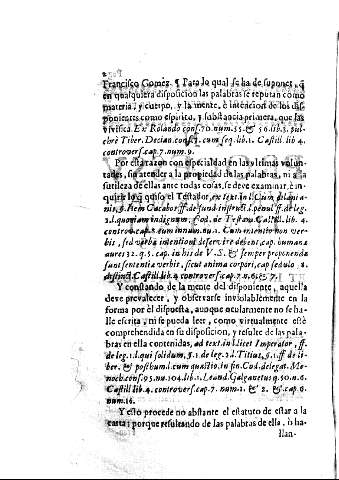 Francisco Gomez. ¶ Para lo qual se ha de suponer, q̃
en qualquiera disposicion las palabras se reputan como
materia, y cuerpo, y la mente, è intencion de los dis-
ponientes como espiritu, y substancia primera, que las
vivifica. Ex Rolando cons. 70. num. 55. & 56. lib. 3. pul-
chrè Tiber. Decian. cons. 1. cum seq. lib. 1. Castill. lib. 4.
controvers. cap. 7. num. 9.
Por esta razon con especialdad en las vltimas volun-
tades, sin atender a la propiedad de las palabras, ni a la
sutileza de ellas ante todas cosas, se deve examinar, è in-
quirir lo q̃ quiso el Testador, ex text. in l. Cum pel
nis, §. Item Cacabo, ff. de fund. instruct. l. penul. ff. de leg.
2. l. quoniam indignum, Cod. de Testam. Castill. lib. 4.
controv. cap. 2. cum innum. nu. 2. Cum mentio non ver-
bis, sed verba intentioni deservire debent, cap. humanæ
aures 32. q. 5. cap. in his de V. S. & semper proponenda
sunt sententia verbis, sicut anima corpori, cap. sedulo 8.
distinct. Castill. lib. 4. controvers. cap. 7. n. 6. & 7.
Y constando de la mente del disponiente, aquella
deve prevalecer, y observarse inviolablemente en la
forma por èl dispuesta, aunque ocularmente no se ha-
lle escrita, ni se pueda leer, como virtualmente estè
comprehendida en su disposicion, y resulte de las pala-
bras en ella contenidas, ad text. in l. licet Imperator, ff.
de leg. 1. l. qui solidum, §. 1. de leg. 2. l. Titius, §. 1. ff. de li-
ber. & posthum. l. cum quæstio, in fin. Cod. de legat. Me-
noch. cons. 95. nu. 104. lib. 1. Leand. Galganetus q. 50. n. 6.
Castill. lib. 4. controvers. cap. 7. num. 1. & 2. & cap. 6.
num. 16.
Y esto procede no abstante el estatuto de estar a la
carta; porque resultando de las palabras de ella, ò ha-
llan-